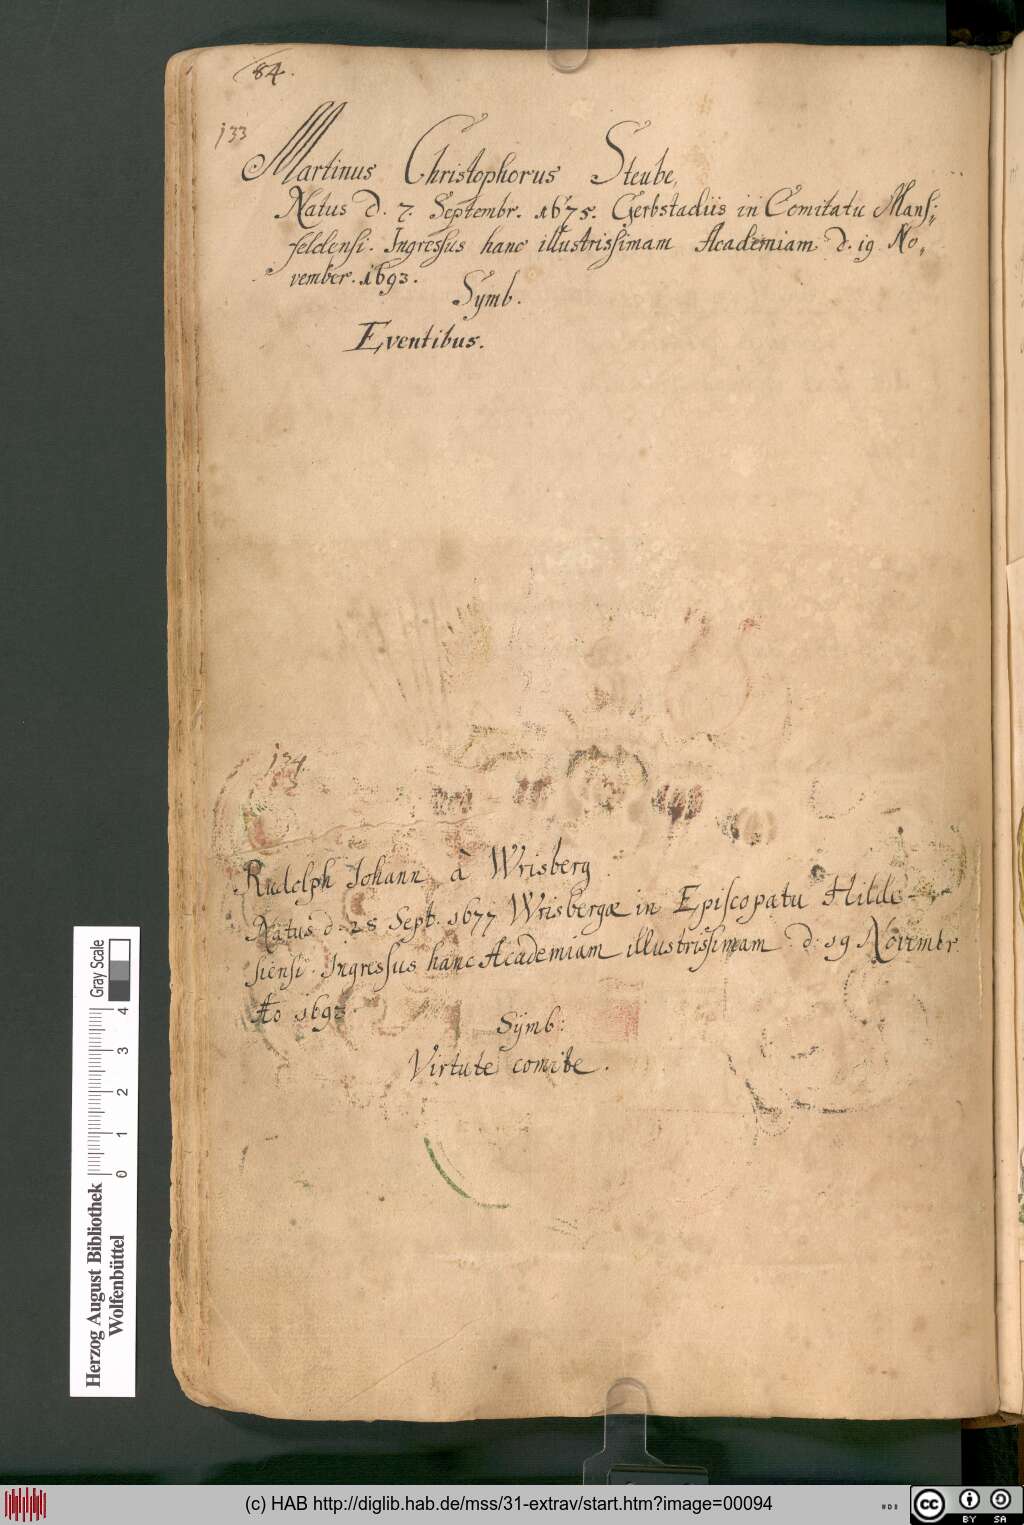 84.
133
Martinus Christophorus Steube,
Natus d. 7. Septembr. 1675. Gerbstadiis in Comitatu Mans=
feldensi. Ingressus hanc illustrissimam Academiam d. 19 No,
vember. 1693.
Symb.
Eventibus.
134.
Rudolph Johann à Wrisberg
Natus d. 28 Sept. 1677 Wrisbergæ in Episcopatu Hilde-
siensi. Ingressus hanc Academiam illustrissimam d: 19 Novembr
Ao 1693.
Symb:
Virtute comite.
Herzog August Bibliothek
Wolfenbüttel
Gray Scale
0 1 2 3 4
(c) HAB http://diglib.hab.de/mss/31-extrav/start.htm?image=00094
WDB
cc BY SA